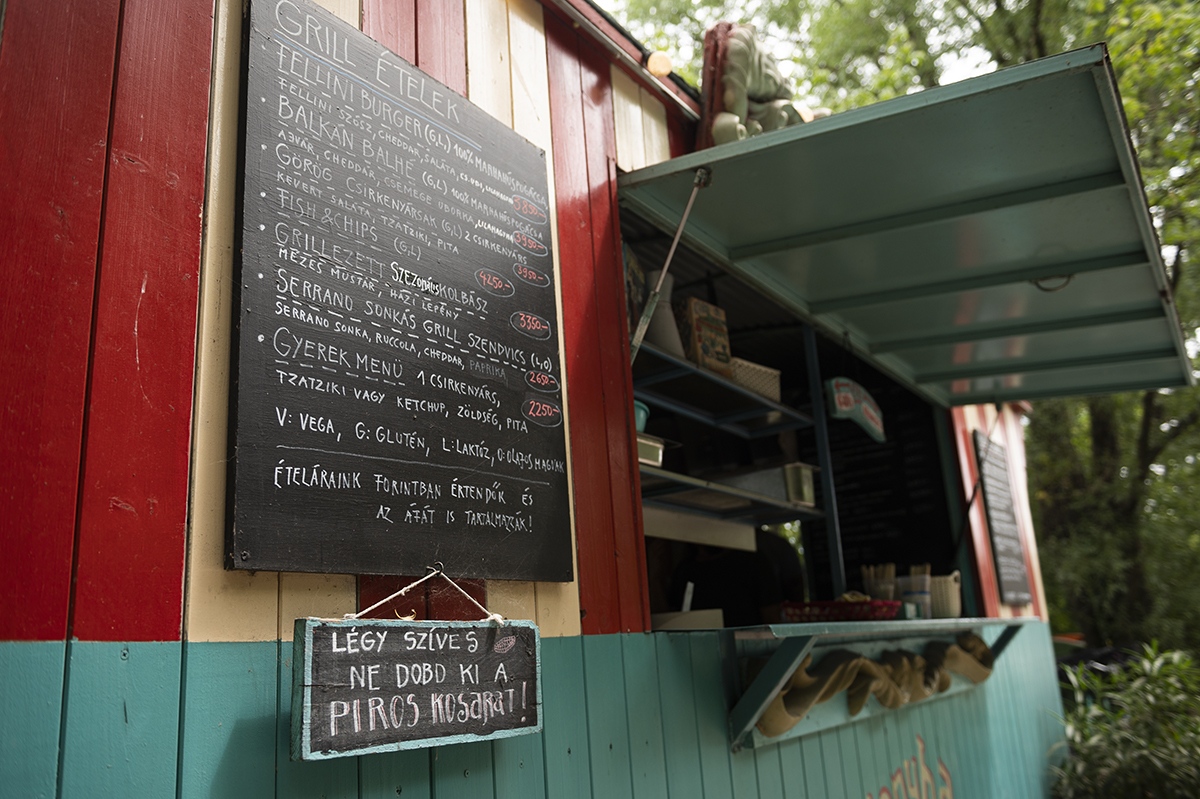 GRILL ÉTELEK
• FELLINI BURGER (G,L) 100% MARHAHÚSPOGÁCSA
FELLINI SZÓSZ, CHEDDAR, SALÁTA, 3850.-
• BALKAN BALHÉ (G,L) 100% MARHAHÚSPOGÁCSA
AJVÁR, CHEDDAR, CSEMEGE UBORKA, LILAHAGYMA 3950.-
• GÖRÖG CSIRKENYÁRSAK (G,L) 2 CSIRKENYÁRS
KEVERT SALÁTA, TZATZIKI, PITA 3950.-
• FISH & CHIPS (G,L) 4250.-
• GRILLEZETT SZEZONÁLIS KOLBÁSZ
MÉZES MUSTÁR, HÁZI LEPÉNY 3350.-
• SERRANO SONKÁS GRILL SZENDVICS (L,O)
SERRANO SONKA, RUCCOLA, CHEDDAR, PAPRIKA 2650.-
• GYEREK MENÜ 1 CSIRKENYÁRS,
TZATZIKI VAGY KETCHUP, ZÖLDSÉG, PITA 2250.-
V: VEGA, G: GLUTÉN, L: LAKTÓZ, O: OLAJOS MAGVAK
ÉTELÁRAINK FORINTBAN ÉRTENDŐK ÉS
AZ ÁFÁT IS TARTALMAZZÁK!
LÉGY SZÍVES
NE DOBD KI A
PIROS KOSARAT!